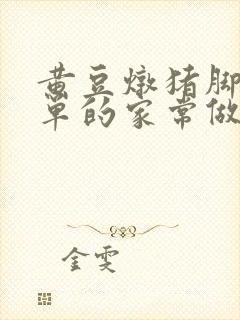 黄豆燉猪脚
单的家常做
金雯